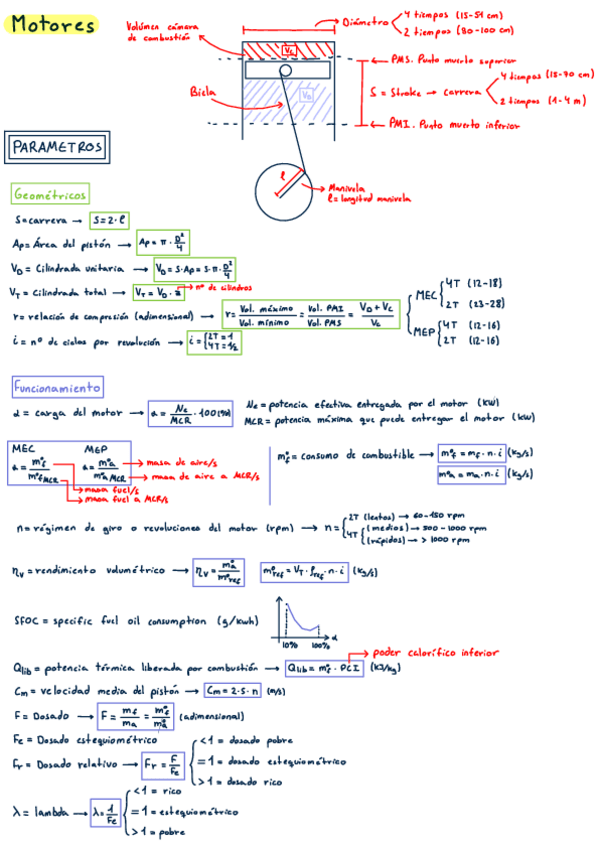 Motores
Volúmen cámara de combustión
Vc
VD
Diámetro
4 tiempos (15-51 cm)
2 tiempos (80-100 cm)
PMS. Punto muerto superior
S = Stroke → carrera
4 tiempos (15-90 cm)
2 tiempos (1-4 m)
PMI. Punto muerto inferior
Biela
l
Manivela
l = longitud manivela
PARAMETROS
Geométricos
S = carrera → S = 2 · l
Ap = Área del pistón → Ap = π · D²/4
VD = Cilindrada unitaria → VD = S · Ap = S · π · D²/4
VT = Cilindrada total → VT = VD · z → nº de cilindros
r = relación de compresión (adimensional) → r = Vol. máximo / Vol. mínimo = Vol. PMI / Vol. PMS = VD + Vc / Vc
MEC 4T (12-18)
2T (23-28)
MEP 4T (12-16)
2T (12-16)
i = nº de ciclos por revolución → i = 2T = 1
4T = 1/2
Funcionamiento
α = carga del motor → α = Ne/MCR · 100 [%]
Ne = potencia efectiva entregada por el motor (KW)
MCR = potencia máxima que puede entregar el motor (KW)
MEC MEP
α = m°f / m°f MCR α = m°a / m°a MCR
masa de aire/s
masa de aire a MCR/s
masa fuel/s
masa fuel a MCR/s
m°f = consumo de combustible → m°f = mf · n · i (kg/s)
m°a = ma · n · i (kg/s)
n = régimen de giro o revoluciones del motor (rpm) → n = 2T (lentos) → 60-150 rpm
4T (medios) → 500-1000 rpm
(rápidos) → > 1000 rpm
ηv = rendimiento volumétrico → ηv = m°a / m°ref m°ref = VT · ρref · n · i (kg/s)
SFOC = specific fuel oil consumption (g/kwh)
10% 100% α
poder calorífico inferior
Qlib = potencia térmica liberada por combustión → Qlib = m°f · PCI (KJ/kg)
Cm = velocidad media del pistón → Cm = 2 · S · n (m/s)
F = Dosado → F = mf/ma = m°f/m°a (adimensional)
Fe = Dosado estequiométrico
Fr = Dosado relativo → Fr = F/Fe
< 1 = dosado pobre
= 1 = dosado estequiométrico
> 1 = dosado rico
λ = lambda → λ = 1/Fe
< 1 = rico
= 1 = estequiométrico
> 1 = pobre